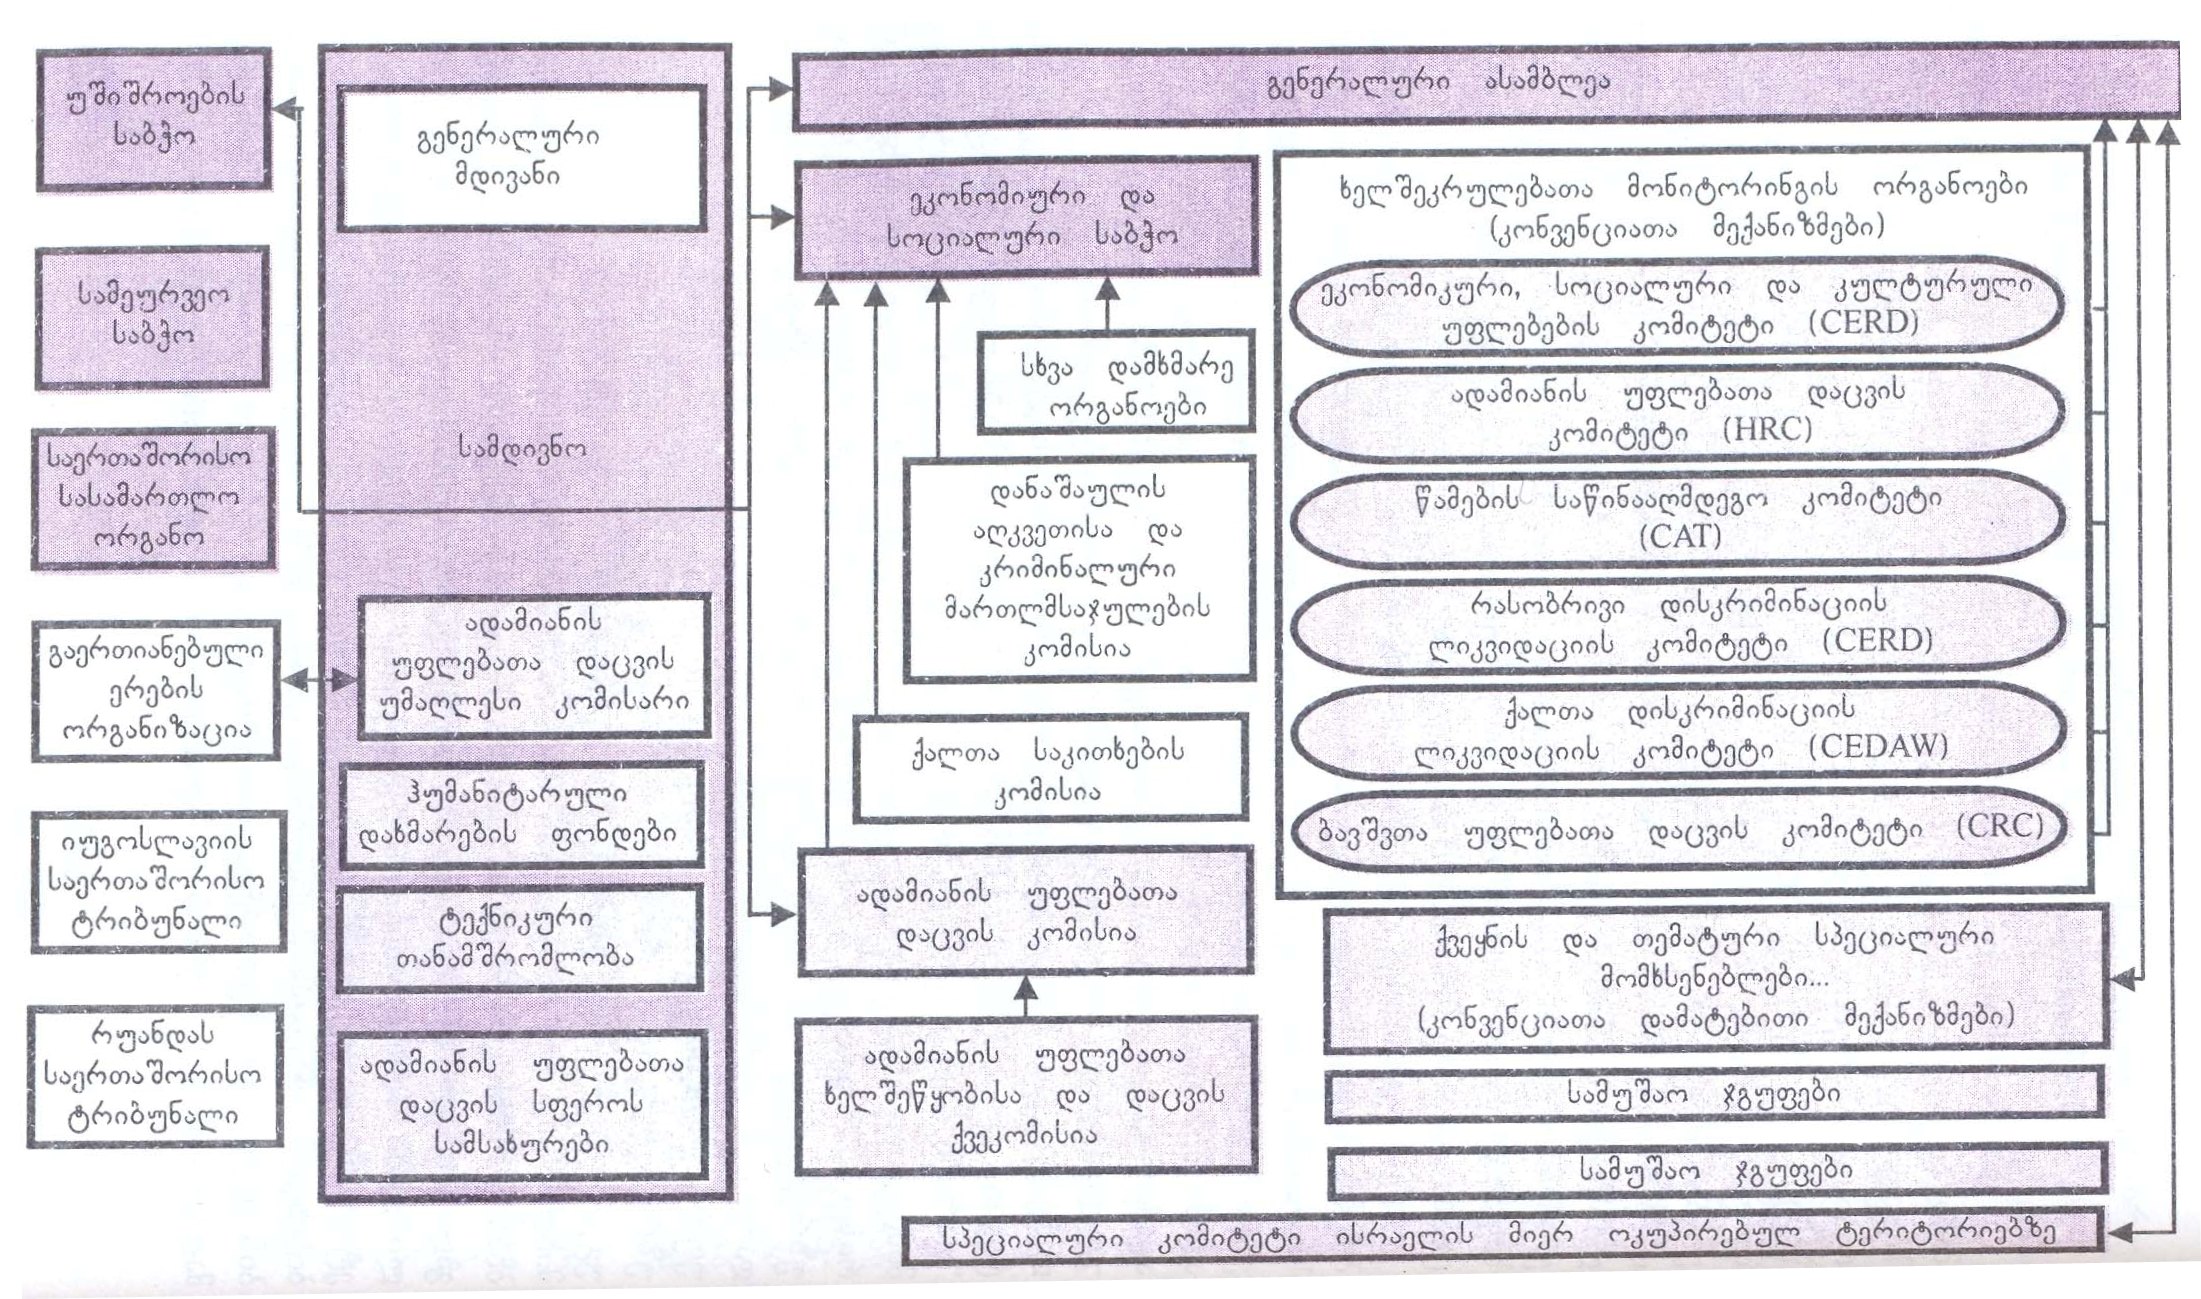 უშიშროების
საბჭო
სამეურვეო
საბჭო
საერთაშორისო
სასამართლო
ორგანო
გაერთიანებული
ერების
ორგანიზაცია
იუგოსლავიის
საერთაშორისო
ტრიბუნალი
რუანდას
საერთაშორისო
ტრიბუნალი
გენერალური
მდივანი
სამდივნო
ადამიანის
უფლებათა დაცვის
უმაღლესი კომისარი
ჰუმანიტარული
დახმარების ფონდები
ტექნიკური
თანამშრომლობა
ადამიანის უფლებათა
დაცვის სფეროს
სამსახურები
გენერალური ასამბლეა
ეკონომიური და
სოციალური საბჭო
სხვა დამხმარე
ორგანოები
დანაშაულის
აღკვეთისა და
კრიმინალური
მართლმსაჯულების
კომისია
ქალთა საკითხების
კომისია
ადამიანის უფლებათა
დაცვის კომისია
ადამიანის უფლებათა
ხელშეწყობისა და დაცვის
ქვეკომისია
ხელშეკრულებათა მონიტორინგის ორგანოები
(კონვენციათა მექანიზმები)
ეკონომიკური, სოციალური და კულტურული
უფლებების კომიტეტი (CERD)
ადამიანის უფლებათა დაცვის
კომიტეტი (HRC)
წამების საწინააღმდეგო კომიტეტი
(CAT)
რასობრივი დისკრიმინაციის
ლიკვიდაციის კომიტეტი (CERD)
ქალთა დისკრიმინაციის
ლიკვიდაციის კომიტეტი (CEDAW)
ბავშვთა უფლებათა დაცვის კომიტეტი (CRC)
ქვეყნის და თემატური სპეციალური
მომხსენებლები...
(კონვენციათა დამატებითი მექანიზმები)
სამუშაო ჯგუფები
სამუშაო ჯგუფები
სპეციალური კომიტეტი ისრაელის მიერ ოკუპირებულ ტერიტორიებზე